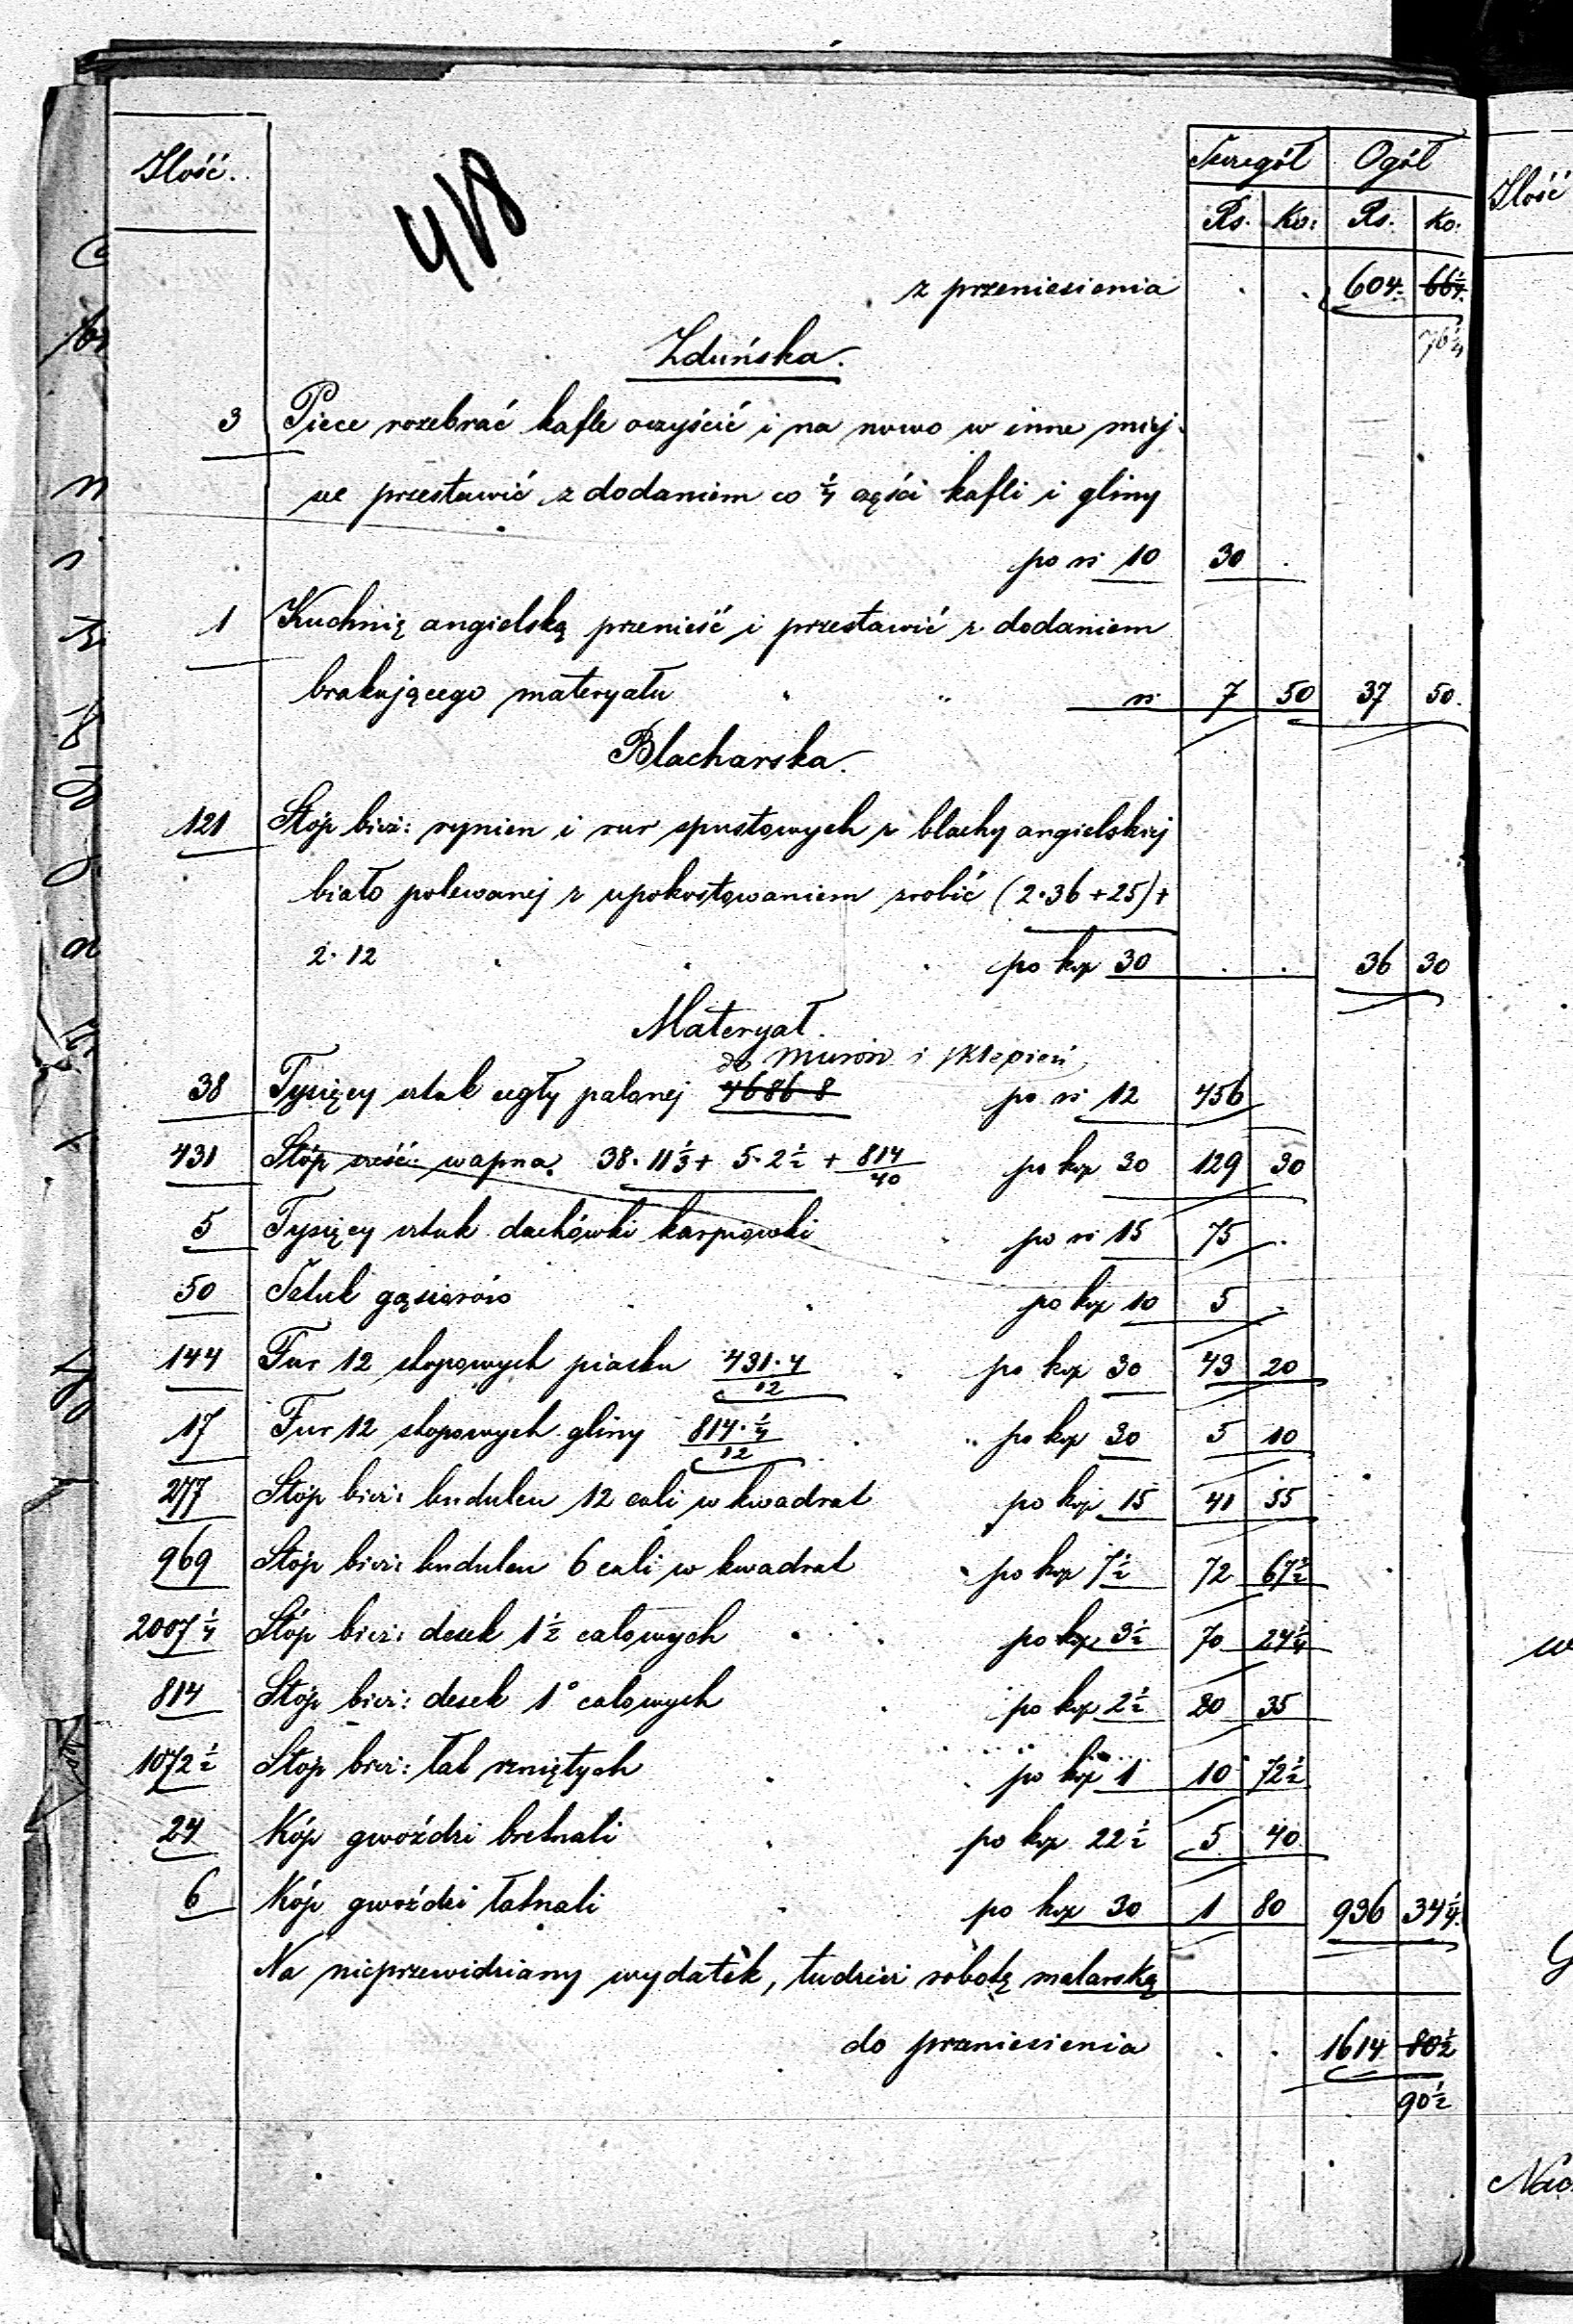 418
Ilość. Szczegół Ogół
Rs. Ko: Rs. Ko.
z przeniesienia . . 604. 66¼.
76¼
Zduńska.
3 Piece rozebrać kafle oczyścić i na nowo w inne miej-
sce przestawić z dodaniem co ¼ części kafli i gliny
po rs 10 30 .
1 Kuchnię angielską przenieść i przestawić z dodaniem
brakującego materyału " " rs 7 50 37 50.
Blacharska.
121 Stóp bież: rynien i rur spustowych z blachy angielskiej
biało polewanej z upokostowaniem zrobić (2·36+25)+
2·12 . . . po kop 30 . . 36 30
Materyał.
do murów i sklepień
38 Tysięcy sztuk cegły palonej 4686-8 po rs 12 456
431 Stóp sześć: wapna. 38·11⅓+ 5·2½ + 814/40 po kop 30 129 30
5 Tysięcy sztuk dachówki karpiowki po rs 15 75 .
50 Sztuk gąsiorów . . po kop 10 5 .
144 Fur 12 stopowych piasku 431·4/12 po kop 30 43 20
17 Fur 12 stopowych gliny 814·¼/12 po kop 30 5 10
277 Stóp bież: budulcu 12 cali w kwadrat po kop 15 41 55
969 Stóp bież: budulcu 6 cali w kwadrat po kop 7½ 72 67½
2007¼ Stóp bież: desek 1½ calowych po kop 3½ 70 24¼
814 Stóp bież: desek 1° calowych po kop 2½ 20 35
1072½ Stóp bież: łat rzniętych po kop 1 10 72½
24 Kóp gwoździ bretnali po kop 22½ 5 40
6 Kóp gwoździ łatnali po kop 30 1 80 936 34¼.
Na nieprzewidziany wydatek, tudzież robotę malarską
do przeniesienia . . 1614 80½
90½
Ilość